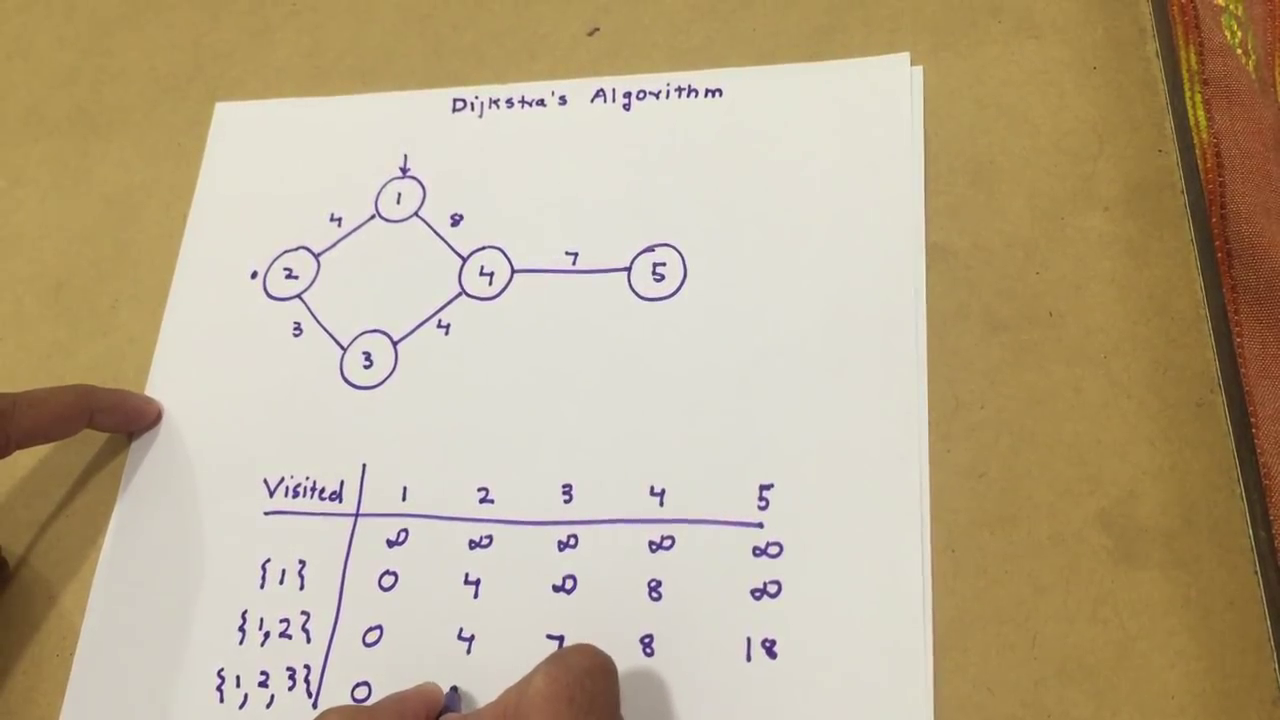 Dijkstra's Algorithm
1
4 8
2 4 7 5
3 4
3
Visited 1 2 3 4 5
∞ ∞ ∞ ∞ ∞
{1} 0 4 ∞ 8 ∞
{1,2} 0 4 7 8 18
{1,2,3} 0